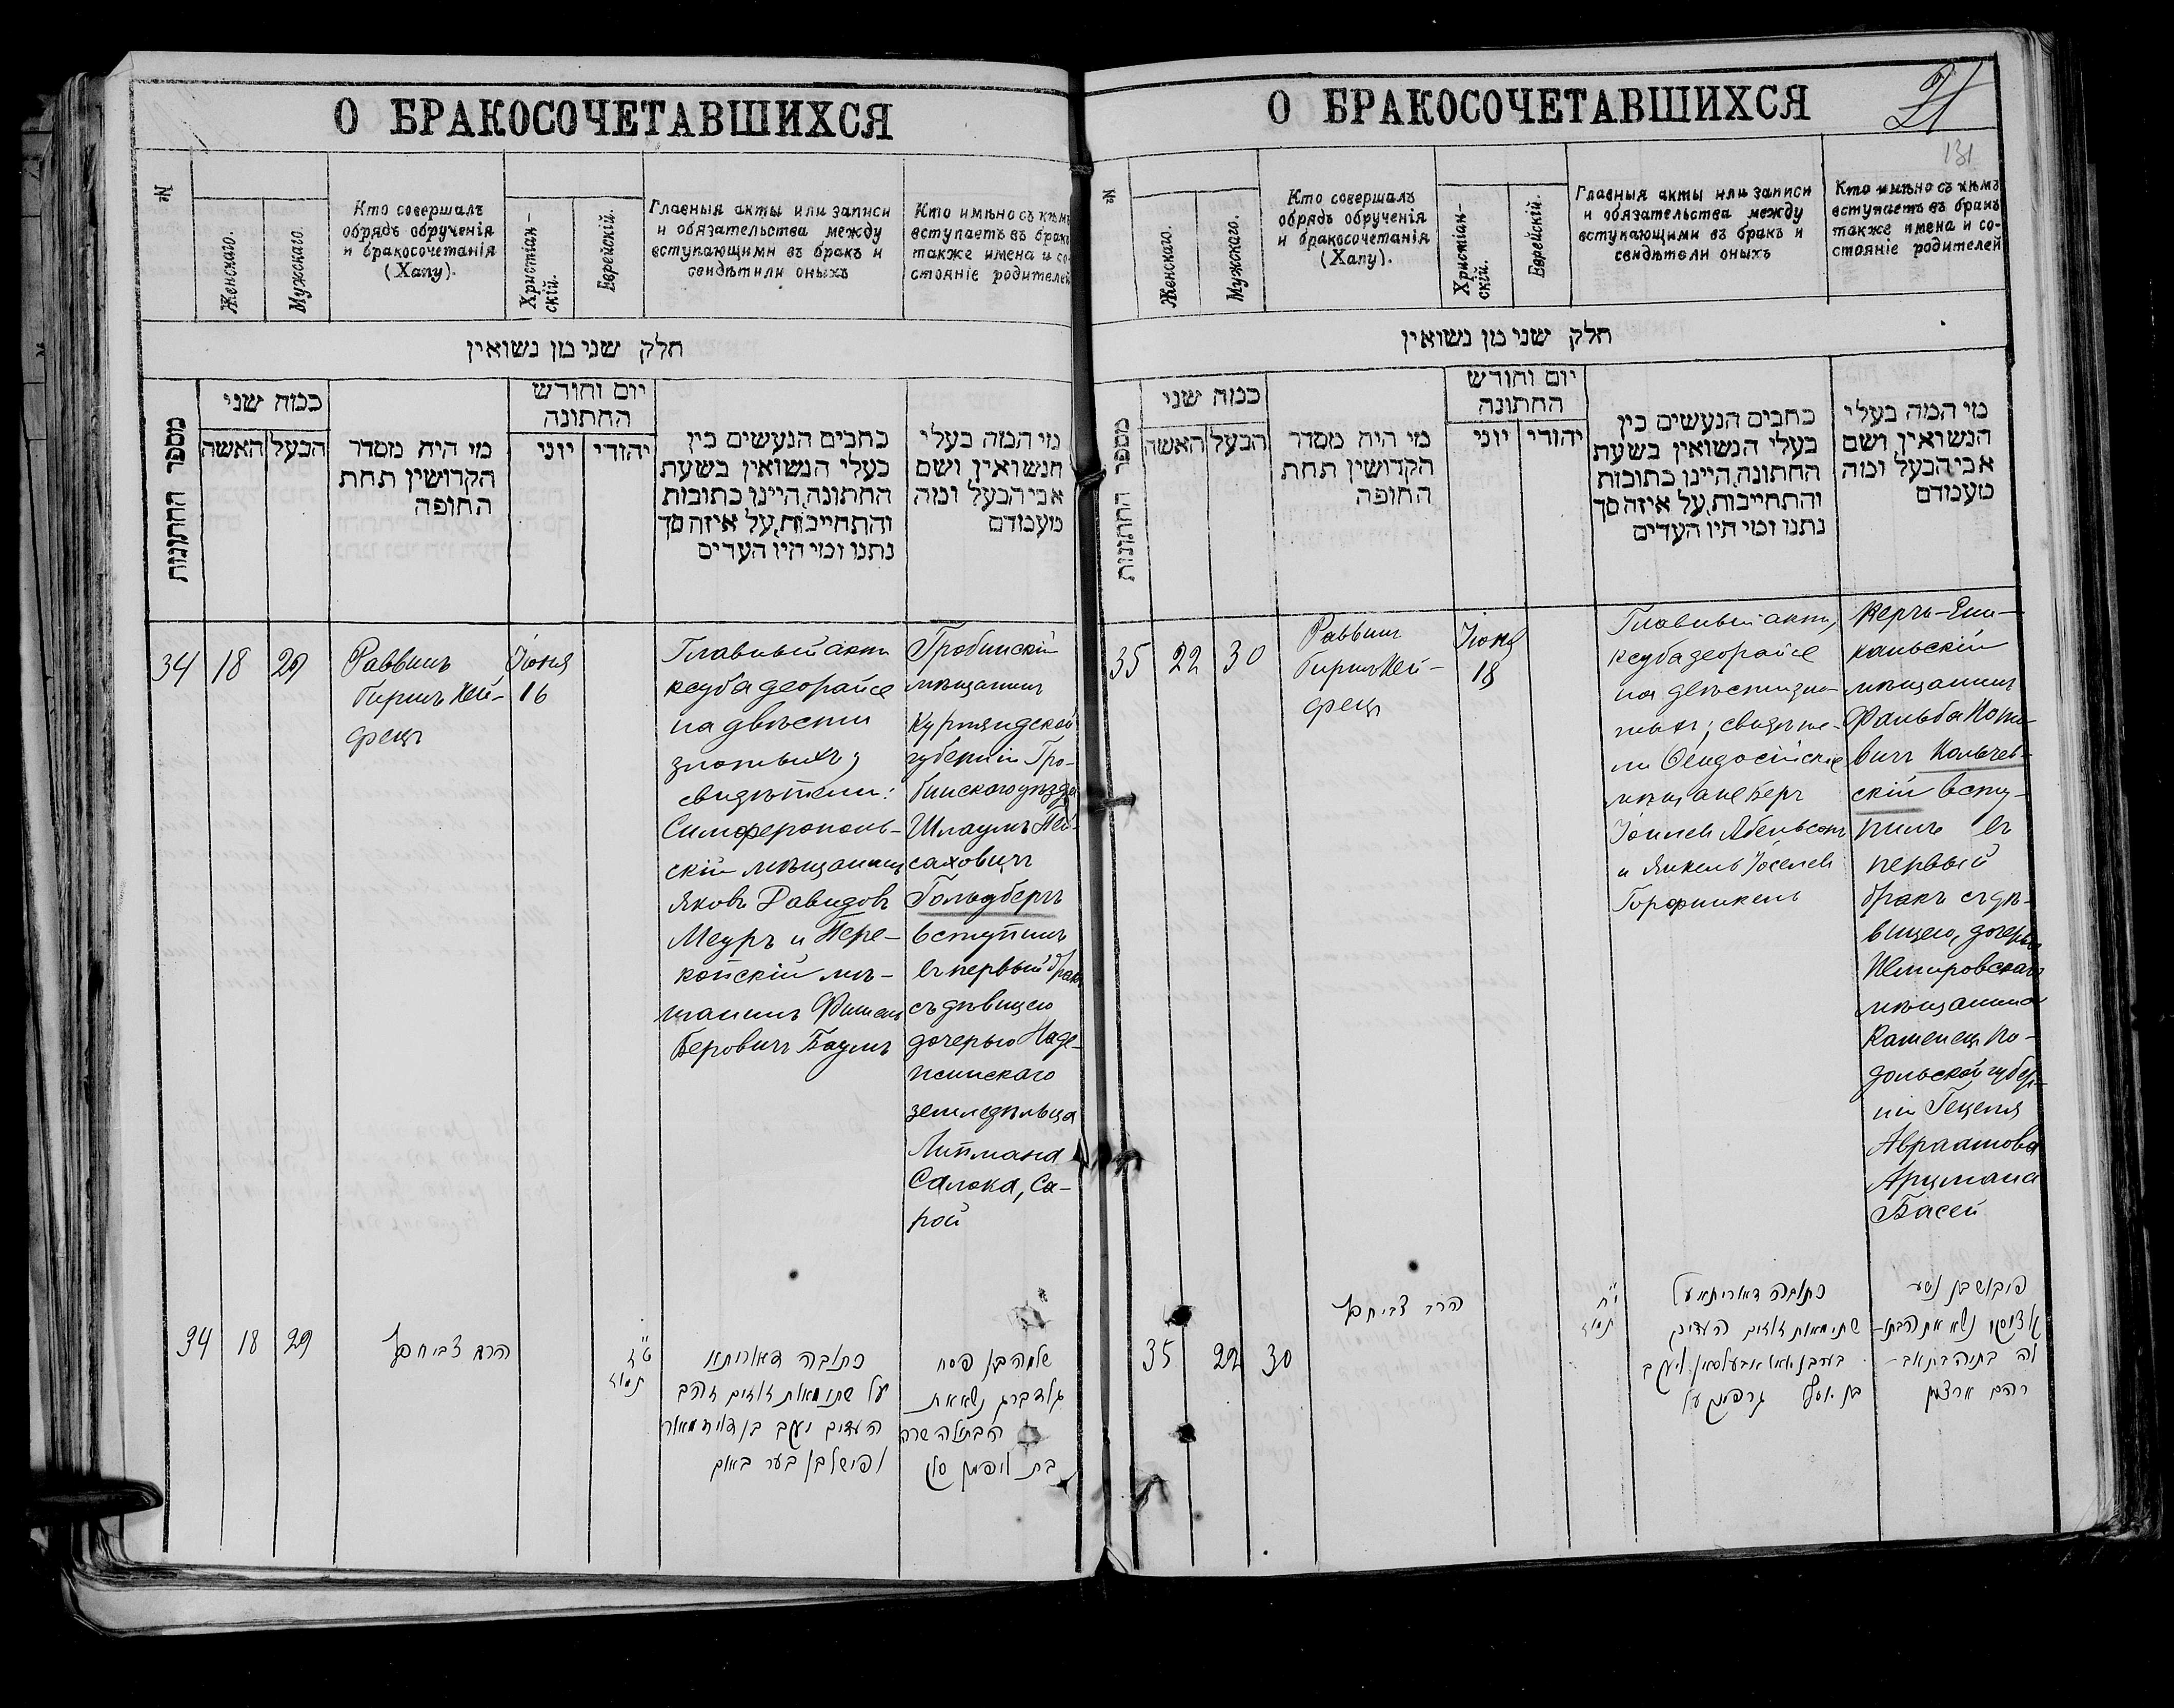 О БРАКОСОЧЕТАВШИХСЯ
№
Женскаго.
Мужскаго.
Кто совершалъ
обрядъ обрученія
и бракосочетанія
(Хапу).
Христіан-
скій.
Еврейскій.
Главныя акты или записи
и обязательства между
вступающими въ бракъ и
свидѣтили оныхъ
Кто имѣно съ кѣмъ
вступаетъ въ бракъ
также имена и со-
стояніе родителей
חלק שני מן נשואין
מספר החתונות
כמה שני
האשה
הבעל
מי היה מסדר
הקדושין תחת
החופה
יום וחודש
החתונה
יוני
יהודי
כתבים הנעשים בין
בעלי הנשואין בשעת
החתונה, היינו כתובות
והתחייבות, על איזה סך
נתנו ומי היו העדים
מי המה בעלי
הנשואין ושם
אבי הבעל ומה
מעמדם
34
18
29
Раввинъ
Гиршъ Хей-
фецъ
Іюня
16
Главный актъ
ксуба деорайсе
на двѣсти
злотыхъ;
свидѣтели:
Симферополь-
скій мѣщанинъ
Яковъ Давидовъ
Меуръ и Пере-
копскій мѣ-
щанинъ Фишель
Беровичъ Баумъ
Гробинскій
мѣщанинъ
Курляндской
губерніи Гро-
бинскаго уѣзда
Шлаумъ Пей-
саховичъ
Гольдбергъ
вступилъ
въ первый бракъ
съ дѣвицею
дочерью Наде-
жинскаго
земледѣльца
Липмана
Салока, Са-
рой
34
18
29
הרב צבי חפץ
ט"ז
תמוז
כתובה דאוריתא
על שתי מאות זוזים זהב
העדים יעקב בן דוד מאור
ופישל בן בער באום
שלמה בן פסח
גולדברג נשא את
הבתולה שרה
בת ליפמן
О БРАКОСОЧЕТАВШИХСЯ
21
131
№
Женскаго.
Мужскаго.
Кто совершалъ
обрядъ обрученія
и бракосочетанія
(Хапу).
Христіан-
скій.
Еврейскій.
Главныя акты или записи
и обязательства между
вступающими въ бракъ и
свидѣтели оныхъ
Кто имѣно съ кѣмъ
вступаетъ въ бракъ
также имена и со-
стояніе родителей
חלק שני מן נשואין
מספר החתונות
כמה שני
האשה
הבעל
מי היה מסדר
הקדושין תחת
החופה
יום וחודש
החתונה
יוני
יהודי
כתבים הנעשים בין
בעלי הנשואין בשעת
החתונה, היינו כתובות
והתחייבות, על איזה סך
נתנו ומי היו העדים
מי המה בעלי
הנשואין ושם
אבי הבעל ומה
מעמדם
35
22
30
Раввинъ
Гиршъ Хей-
фецъ
Іюня
18
Главный актъ,
ксуба деорайсе
на двѣсти зло-
тыхъ; свидѣте-
ли Ѳеодосійскіе
мѣщане Беръ
Іоилевъ Абельсонъ
и Янкель Іоселевъ
Горфинкель
Керчь-Ени-
кальскій
мѣщанинъ
вичъ Кольчев-
скій всту-
пилъ въ
первый
бракъ съ дѣ-
вицею, дочерью
Немировскаго
мѣщанина
Каменецъ По-
дольской губер-
ніи Гецеля
Авраамова
Арцмана
Басей
35
22
30
הרב צבי חפץ
י"ח
תמוז
כתובה דאוריתא על
שתי מאות זוזים העדים
יעקב
בן יוסף גרפינקעל
פייבוש בן נטע
נשא את הבתו-
לה בתיה בת אב-
רהם ארצמן